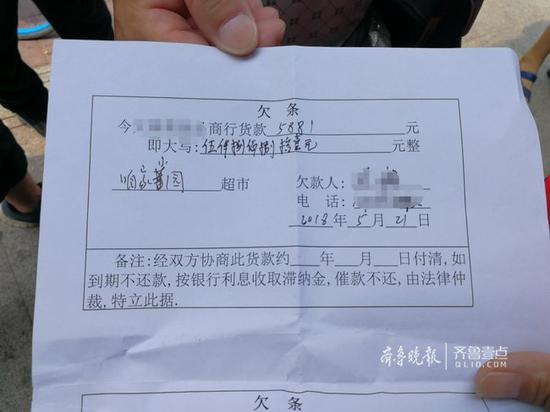 欠 条
今 商行货款 5881 元
即大写:伍仟捌佰捌拾壹元 元整
超市 欠款人:
电 话:
2018 年 5 月 21 日
备注:经双方协商此货款约 年 月 日付清,如
到期不还款,按银行利息收取滞纳金,催款不还,由法律仲
裁,特立此据.
齐鲁晚报 齐鲁壹点
QLIO.COM
欠 条